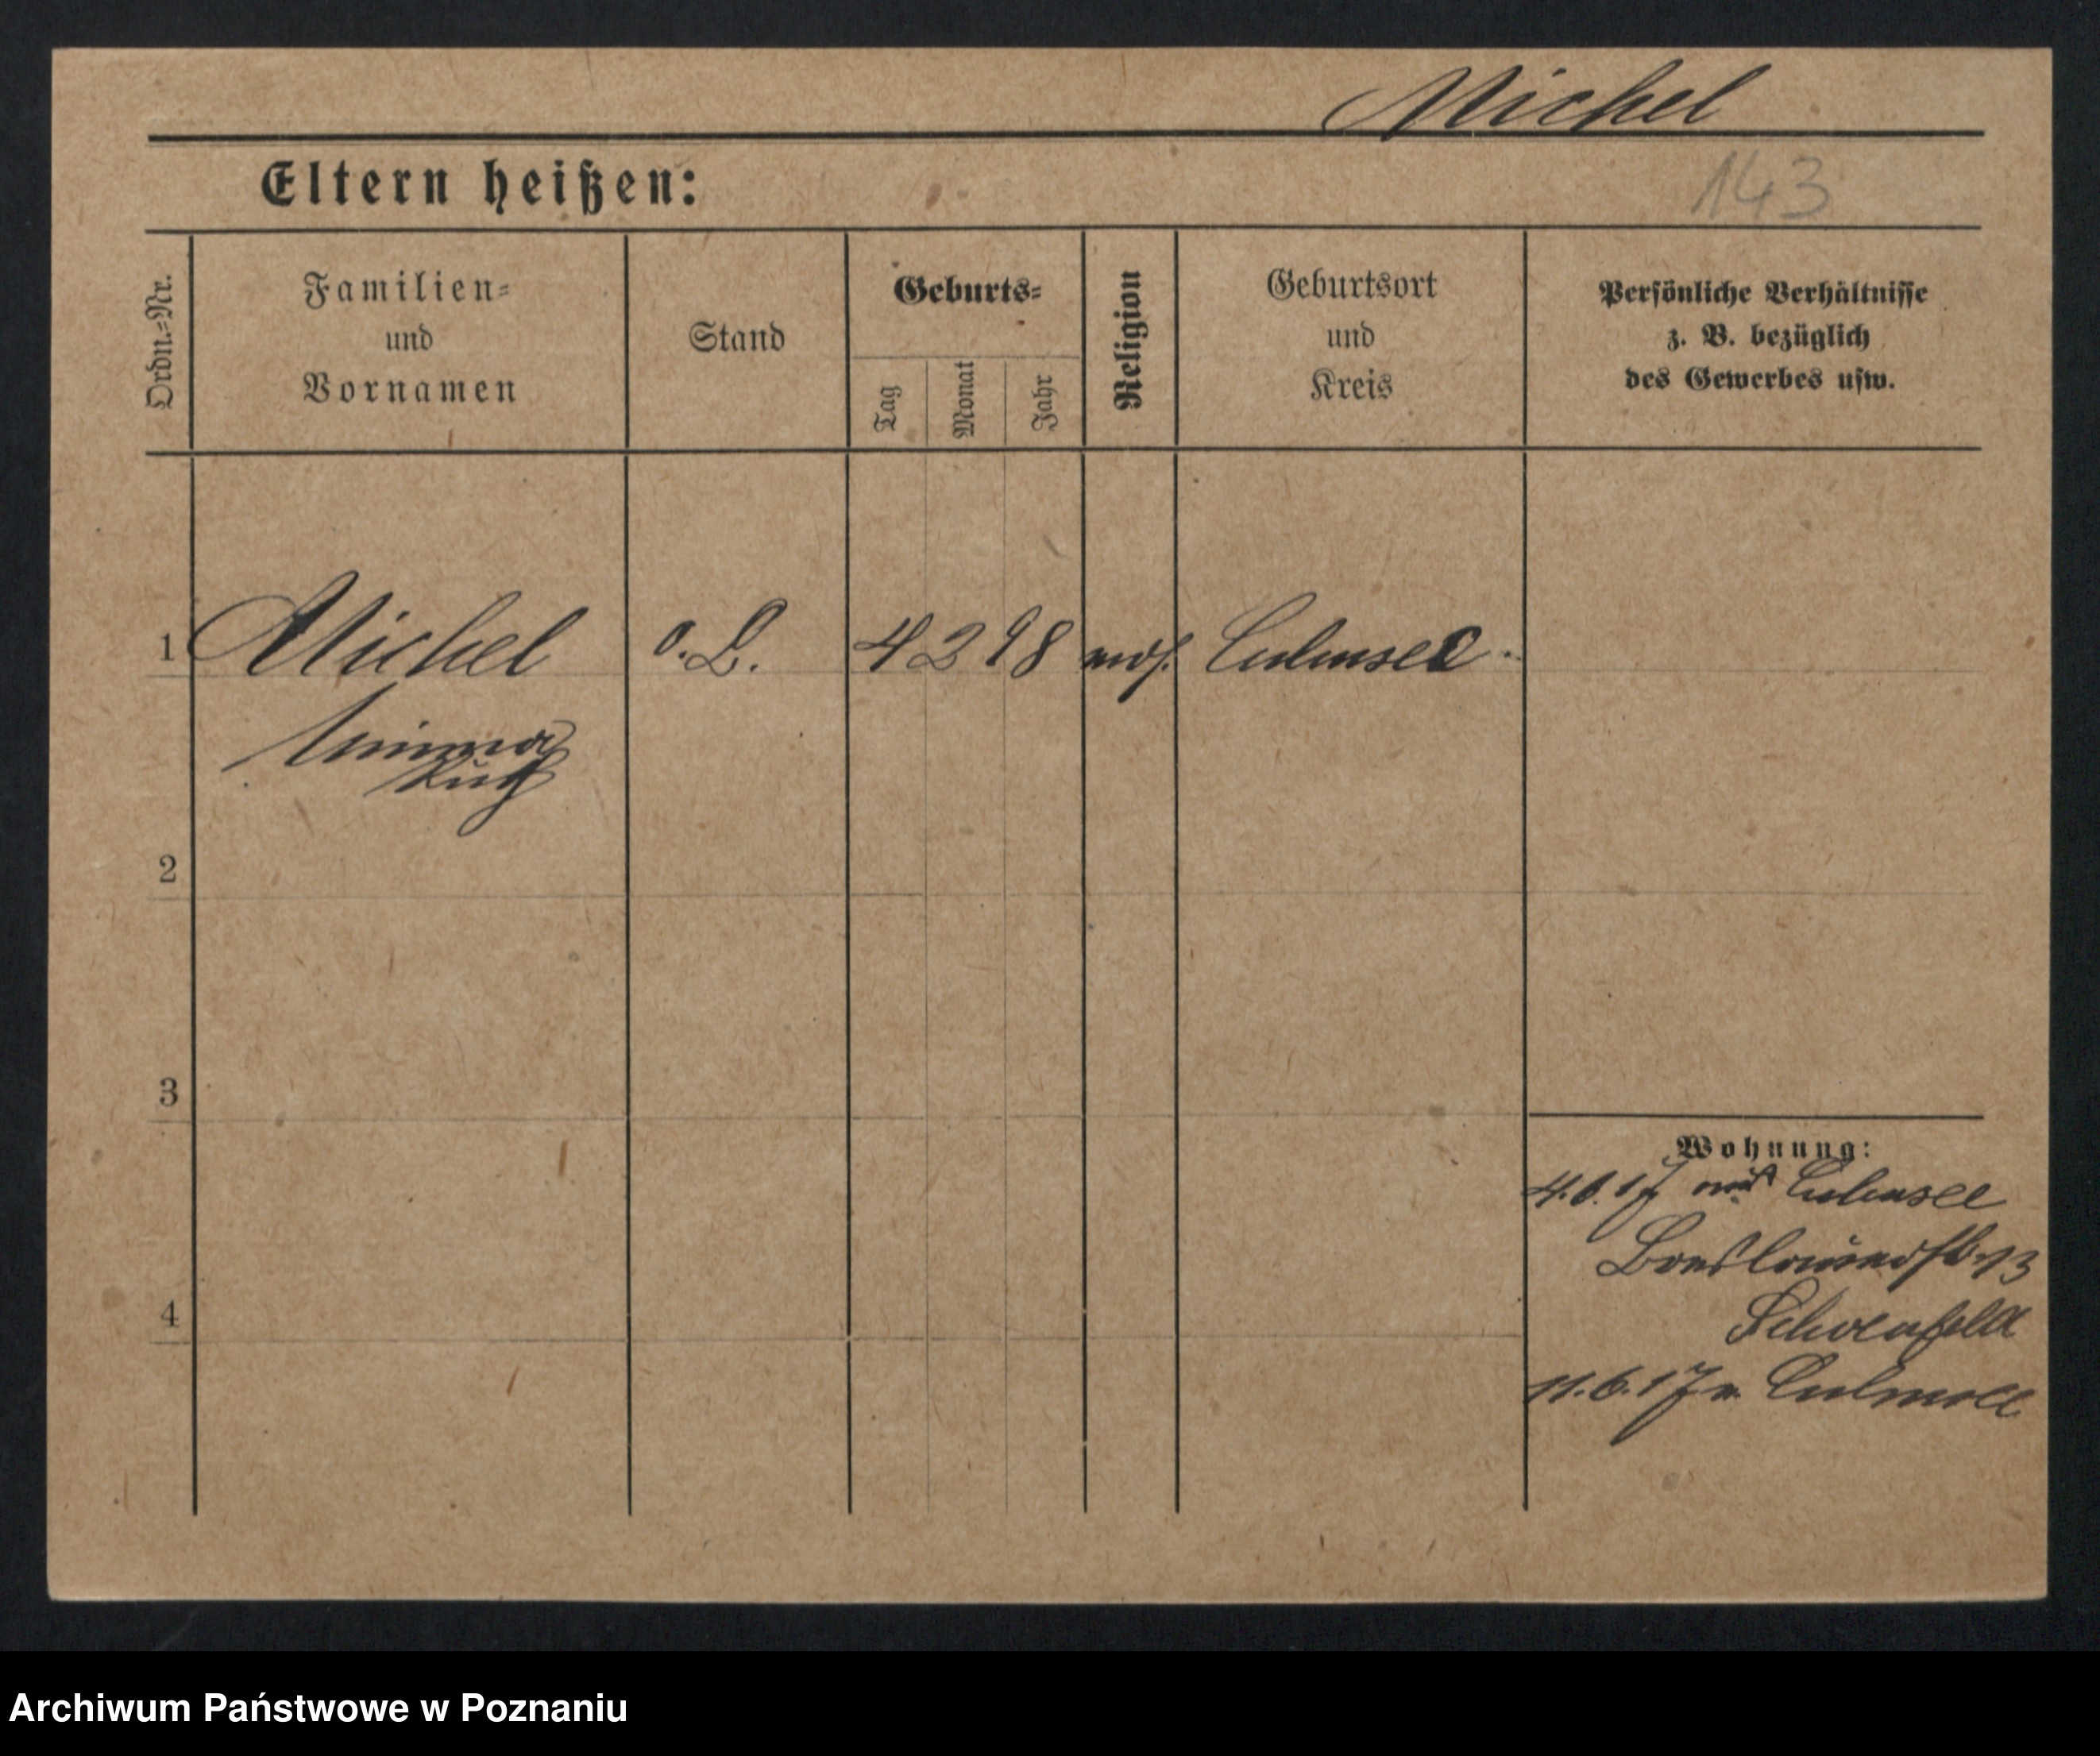 Michel
143
Eltern heißen:
Ordn.-Nr.
Familien-
und
Vornamen
Stand
Geburts-
Tag
Monat
Jahr
Religion
Geburtsort
und
Kreis
Persönliche Verhältnisse
z. B. bezüglich
des Gewerbes usw.
1 Michel o.B. 4 2 98 mos. Culmsee
2
3
4
Wohnung:
4.6.17 aus Culmsee
Breslauerstr 13
Schoenfeld
11.6.17 n. Culmsee
Archiwum Państwowe w Poznaniu